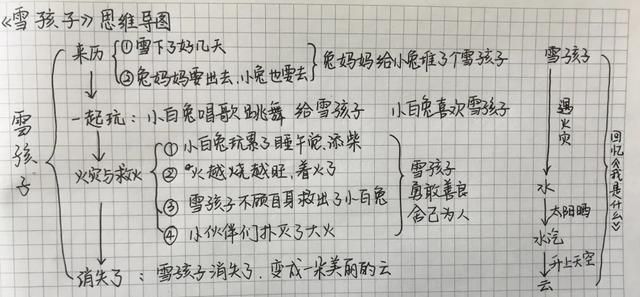 《雪孩子》思维导图
雪孩子
来历
①雪下了好几天
②兔妈妈要出去,小兔也要去
兔妈妈给小兔堆了个雪孩子
一起玩：小白兔唱歌跳舞 给雪孩子 小白兔喜欢雪孩子
火灾与救火
①小白兔玩累了睡午觉,添柴
②火越烧越旺,着火了
③雪孩子不顾自身救出了小白兔
④小伙伴们扑灭了大火
雪孩子
勇敢善良
舍己为人
消失了：雪孩子消失了,变成一朵美丽的云
雪孩子
遇火灾
水
太阳晒
水汽
升上天空
云
回忆《我是什么》